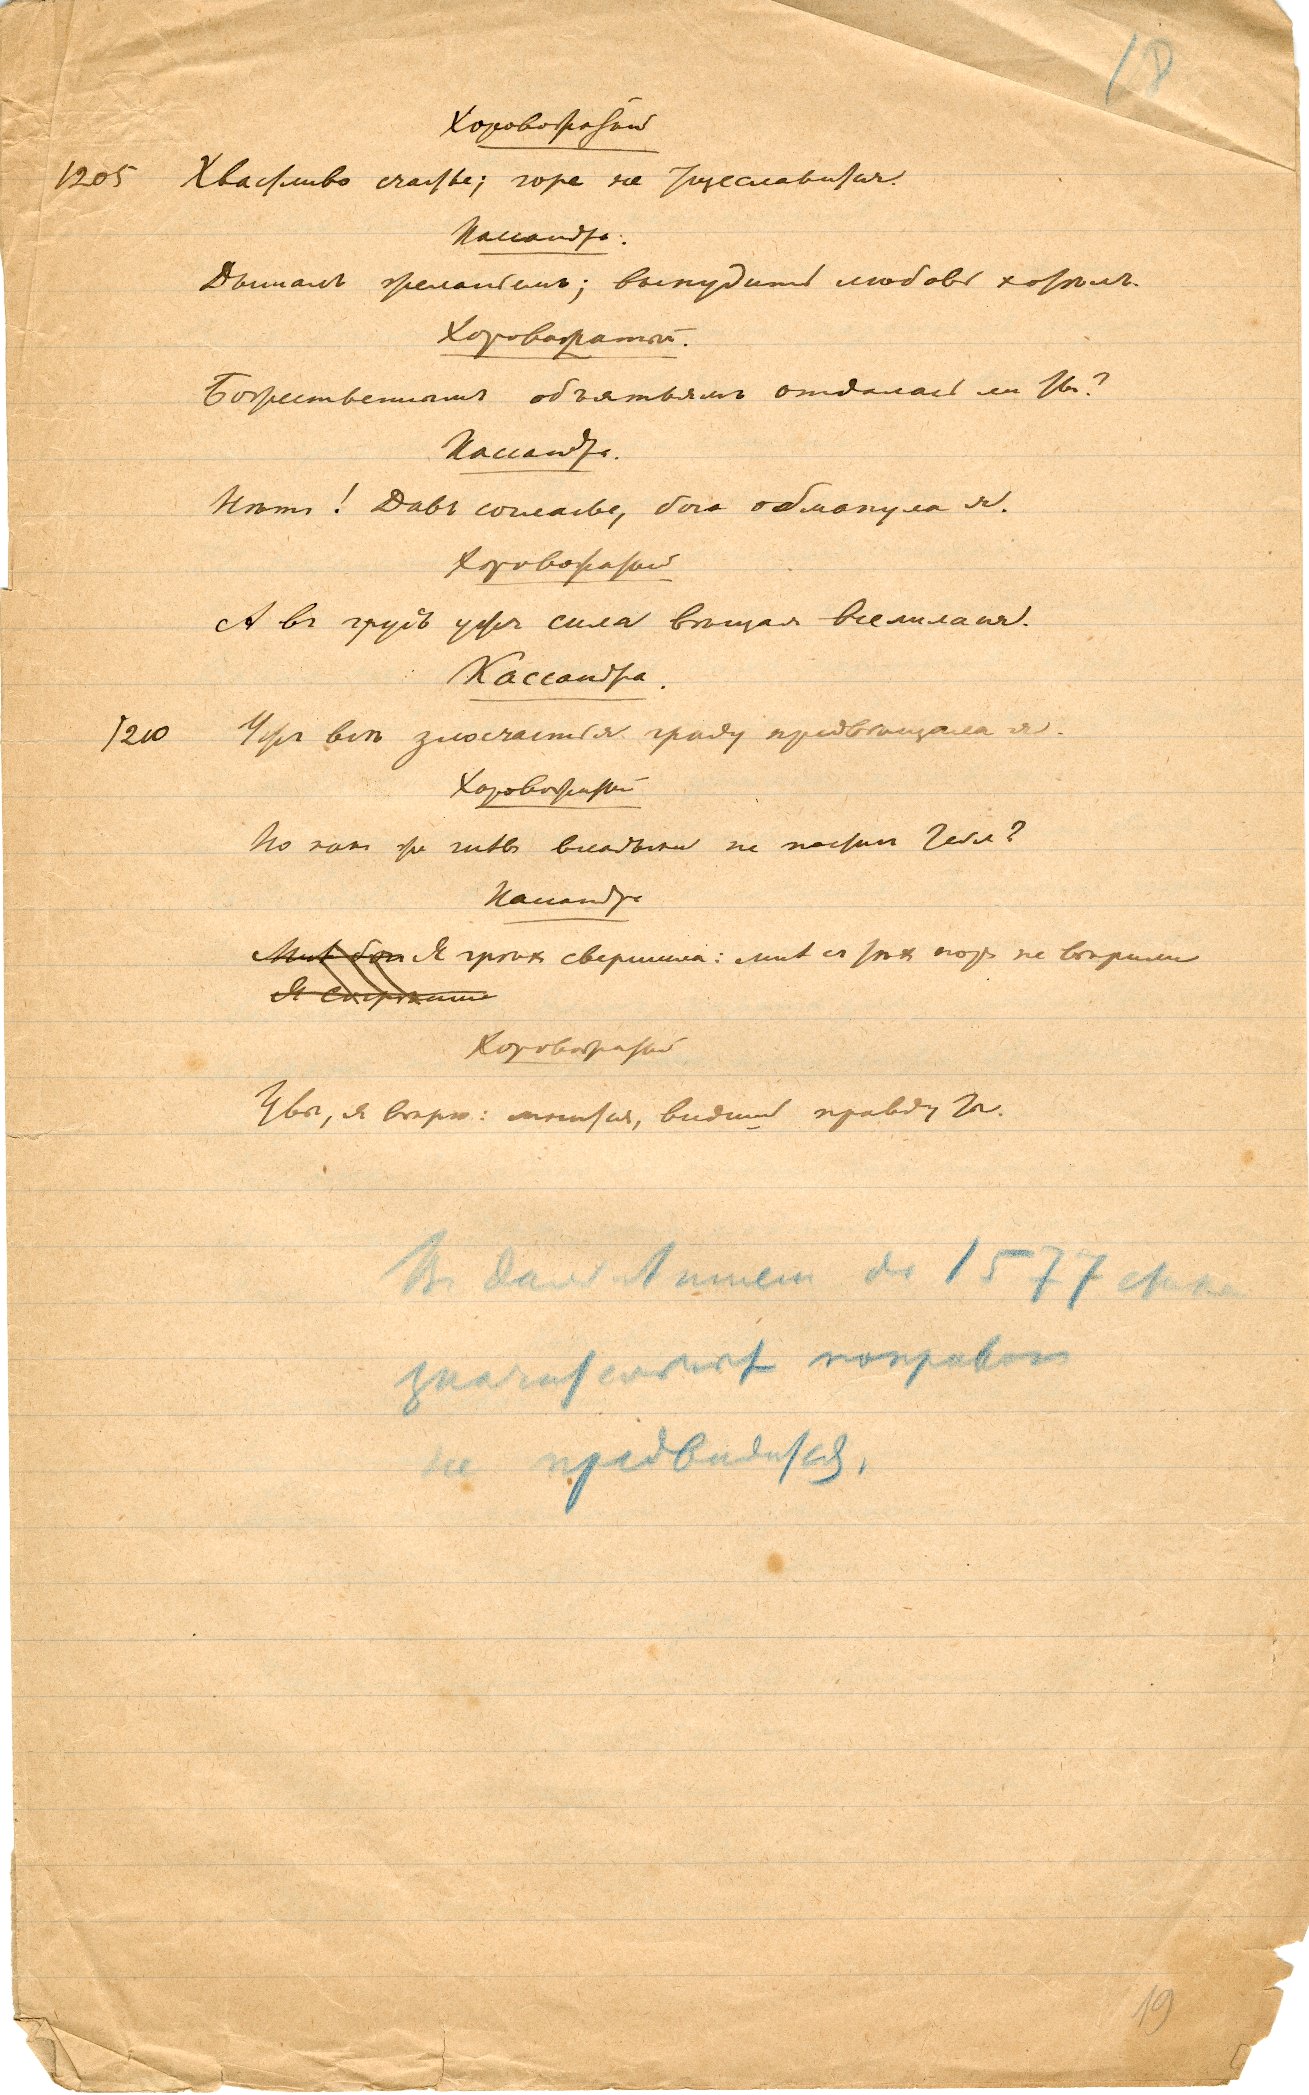 18
Хоровожатый
1205 Хвастливо счастье; горе не тщеславится.
Кассандра.
Дышалъ желаньемъ; вынудить любовь хотѣлъ.
Хоровожатый.
Божественнымъ объятьямъ отдалась ли ты?
Кассандра.
Нѣтъ! Давъ согласье, бога обманула я.
Хоровожатый
А въ грудь ужъ сила вѣщая вселилася.
Кассандра.
1210 Ужъ всѣ злосчастья граду предвѣщала я.
Хоровожатый
Но какъ же гнѣвъ владыки не настигъ тебя?
Кассандра
Мнѣ бог Я грѣхъ свершила: мнѣ съ тѣхъ поръ не вѣрили
Я
Хоровожатый
Увы, я вѣрю: мнится, видишь правду ты.
до 1577 стиха
значительныхъ поправокъ
не предвидится.
19